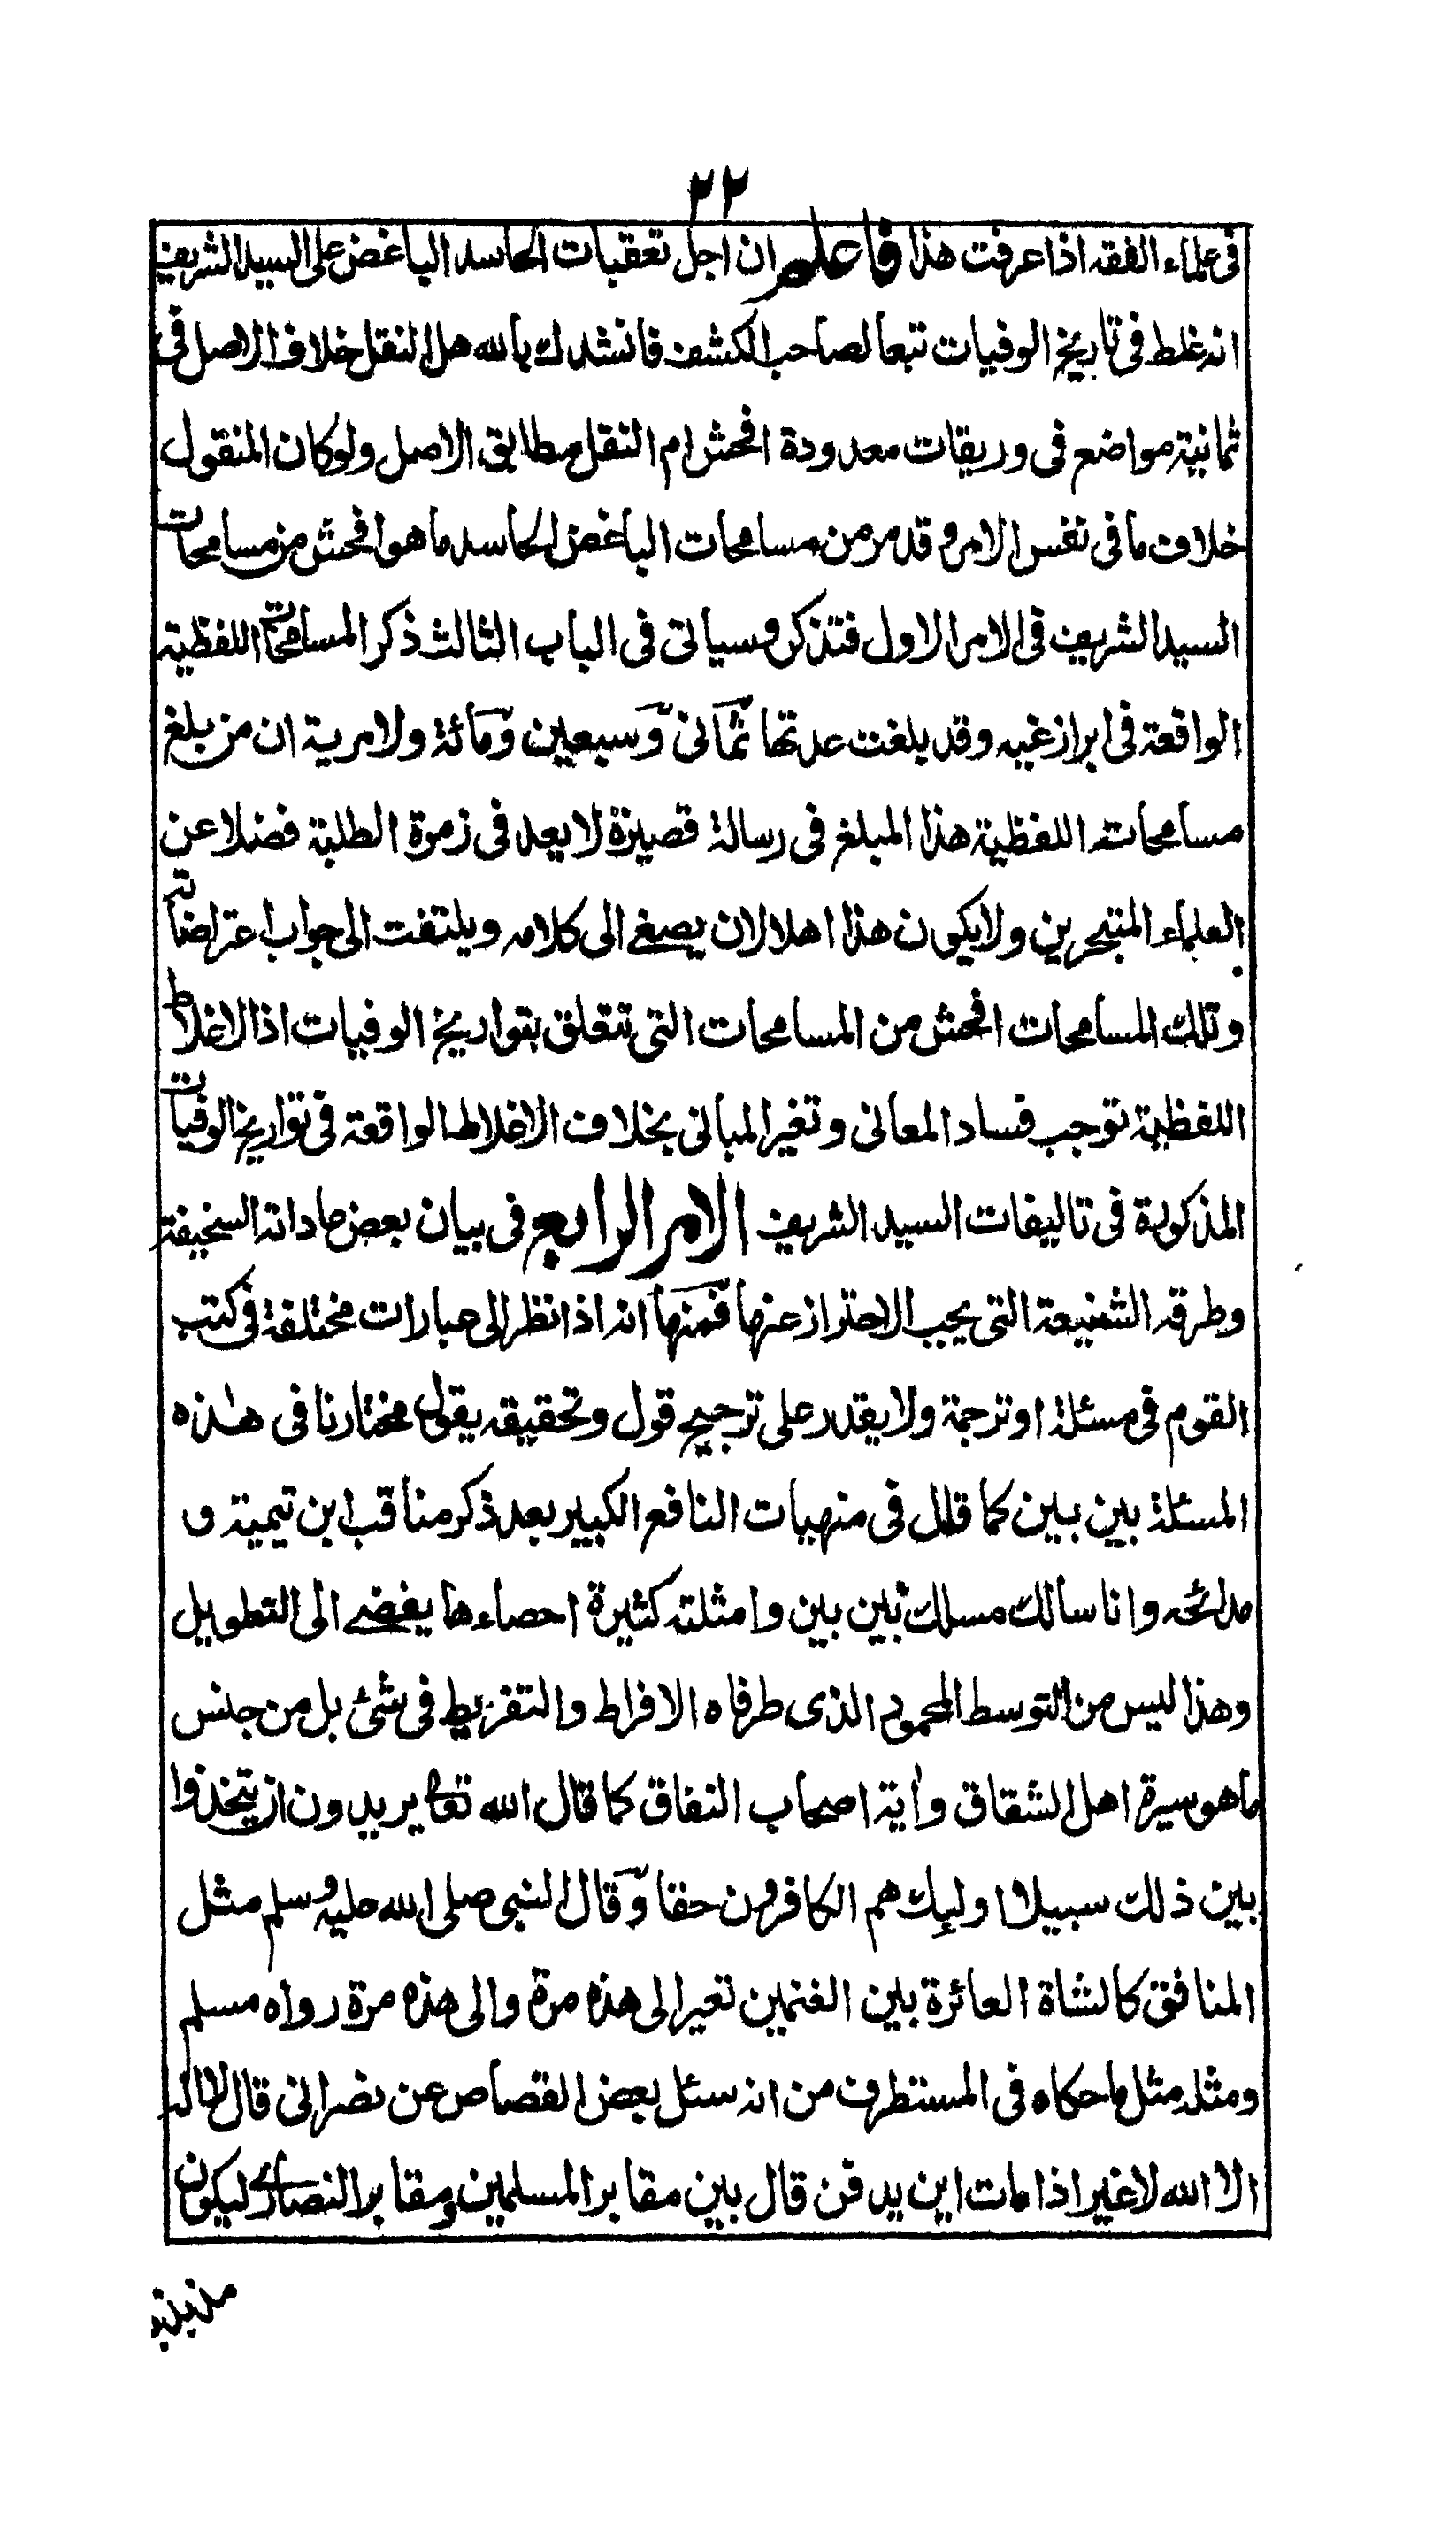 ٢٢
فى علماء الفقه اذا عرفت هذا فاعلم ان اجل تعقبات الحاسد الباغض على السيد الشريف
انه غلط فى تاريخ الوفيات تبعا لصاحب الكشف فانشدك بالله هل النقل خلاف الاصل فى
ثمانية مواضع فى وريقات معدودة افحش ام النقل مطابق الاصل ولو كان المنقول
خلاف ما فى نفس الامر وقد مر من مسامحات الباغض الحاسد ما هو افحش من مسامحات
السيد الشريف فى الامر الاول فتذكر وسياتى فى الباب الثالث ذكر المسامحات اللفظية
الواقعة فى ابراز غيه وقد بلغت عدتها ثمانى وسبعين ومائة ولا مرية ان من بلغ
مسامحاته اللفظية هذا المبلغ فى رسالة قصيرة لا يعد فى زمرة الطلبة فضلا عن
العلماء المتبحرين ولا يكون هذا اهلا لان يصغى الى كلامه ويلتفت الى جواب اعتراضاته
وتلك المسامحات افحش من المسامحات التى تتعلق بتواريخ الوفيات اذ الاغلاط
اللفظية توجب فساد المعانى وتغير المبانى بخلاف الاغلاط الواقعة فى تواريخ الوفيات
المذكورة فى تاليفات السيد الشريف الامر الرابع فى بيان بعض عاداته السخيفة
وطرقه الشنيعة التى يجب الاحتراز عنها فمنها انه اذا نظر الى عبارات مختلفة فى كتب
القوم فى مسئلة او ترجمة ولا يقدر على ترجيح قول وتحقيقه يقول مختارنا فى هذه
المسئلة بين بين كما قال فى منهيات النافع الكبير بعد ذكر مناقب ابن تيمية و
مدائحه وانا سالك مسلك بين بين وامثلته كثيرة احصاءها يفضى الى التطويل
وهذا ليس من التوسط المحمود الذى طرفاه الافراط والتفريط فى شئ بل من جنس
ما هو سيرة اهل الشقاق وأية اصحاب النفاق كما قال الله تعا يريدون ان يتخذوا
بين ذلك سبيلا اولئك هم الكافرون حقا وقال النبى صلى الله عليه وسلم مثل
المنافق كالشاة العائرة بين الغنمين تعير الى هذه مرة والى هذه مرة رواه مسلم
ومثله مثل ما حكاه فى المستطرف من انه سئل بعض القصاص عن نصرانى قال لا اله
الا الله لا غير اذا مات اين يدفن قال بين مقابر المسلمين ومقابر النصارى ليكون